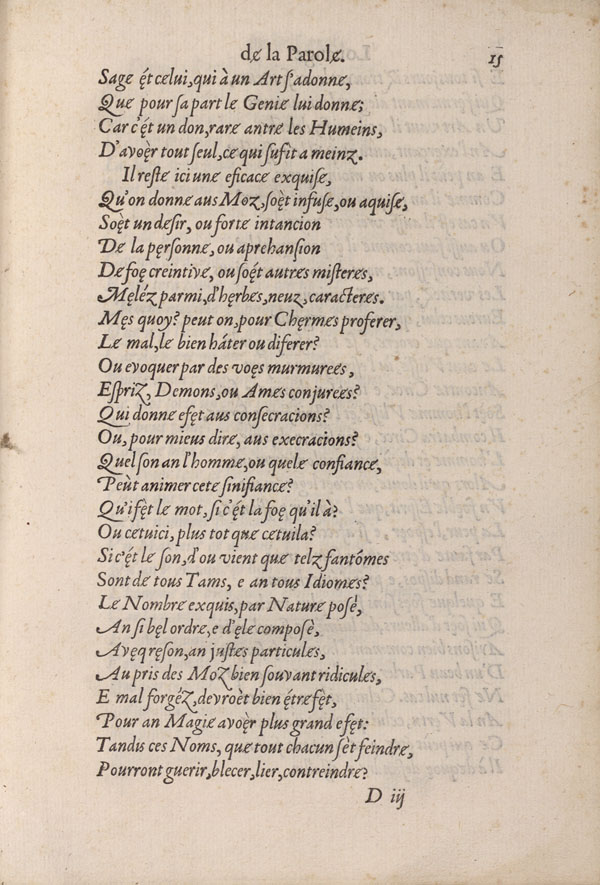 de la Parolɇ. 15
Sagɇ ę́t celui, qui à un Art s'adonnɇ,
Quɇ pour sa part lɇ Geniɇ lui donnɇ;
Car c'ę́t un don, rarɇ antrɇ les Humeins,
D'avoę̀r tout seul, cɇ qui sufit a meinz.
Il restɇ ici unɇ eficacɇ exquisɇ,
Qu'on donnɇ aus Moz, soę̀t infusɇ, ou aquisɇ,
Soę̀t un desir, ou fortɇ intancion
Dɇ la pęrsonnɇ, ou aprehansion
Dɇ foę creintivɇ, ou soę́t autrɇs mistɇrɇs,
Męlę́z parmi, d'hęrbɇs, neuz, caracterɇs.
Męs quoy? peut on, pour Chęrmɇs proferer,
Lɇ mal, lɇ bien háter ou diferer?
Ou evoquer par des voęs murmureɇs,
Espriz, Demons, ou Amɇs conjureɇs?
Qui donnɇ efęt aus consecracions?
Ou, pour mieus dirɇ, aus execracions?
Quel son an l'hommɇ, ou quelɇ confiancɇ,
Peùt animer cetɇ sinifiancɇ?
Qu'i fęt lɇ mot, si c'ę́t la foę qu'il à?
Ou cetuici, plus tot quɇ cetuila?
Si c'ę́t lɇ son, d'ou vient quɇ telz fantómɇs
Sont dɇ tous Tams, e an tous Idiomɇs?
Lɇ Nombrɇ exquis, par Naturɇ posè,
An si bęl ordrɇ, e d'ęlɇ composè,
Avęq ręson, an justɇs particulɇs,
Au pris des Moz bien souvant ridiculɇs,
E mal forgéz, dɇvroèt bien étrɇ fęt,
Pour an Magiɇ avoęr plus grand efęt:
Tandis ces Noms, quɇ tout chacun sèt feindrɇ,
Pourront guerir, blecer, lier, contreindrɇ?
D iij